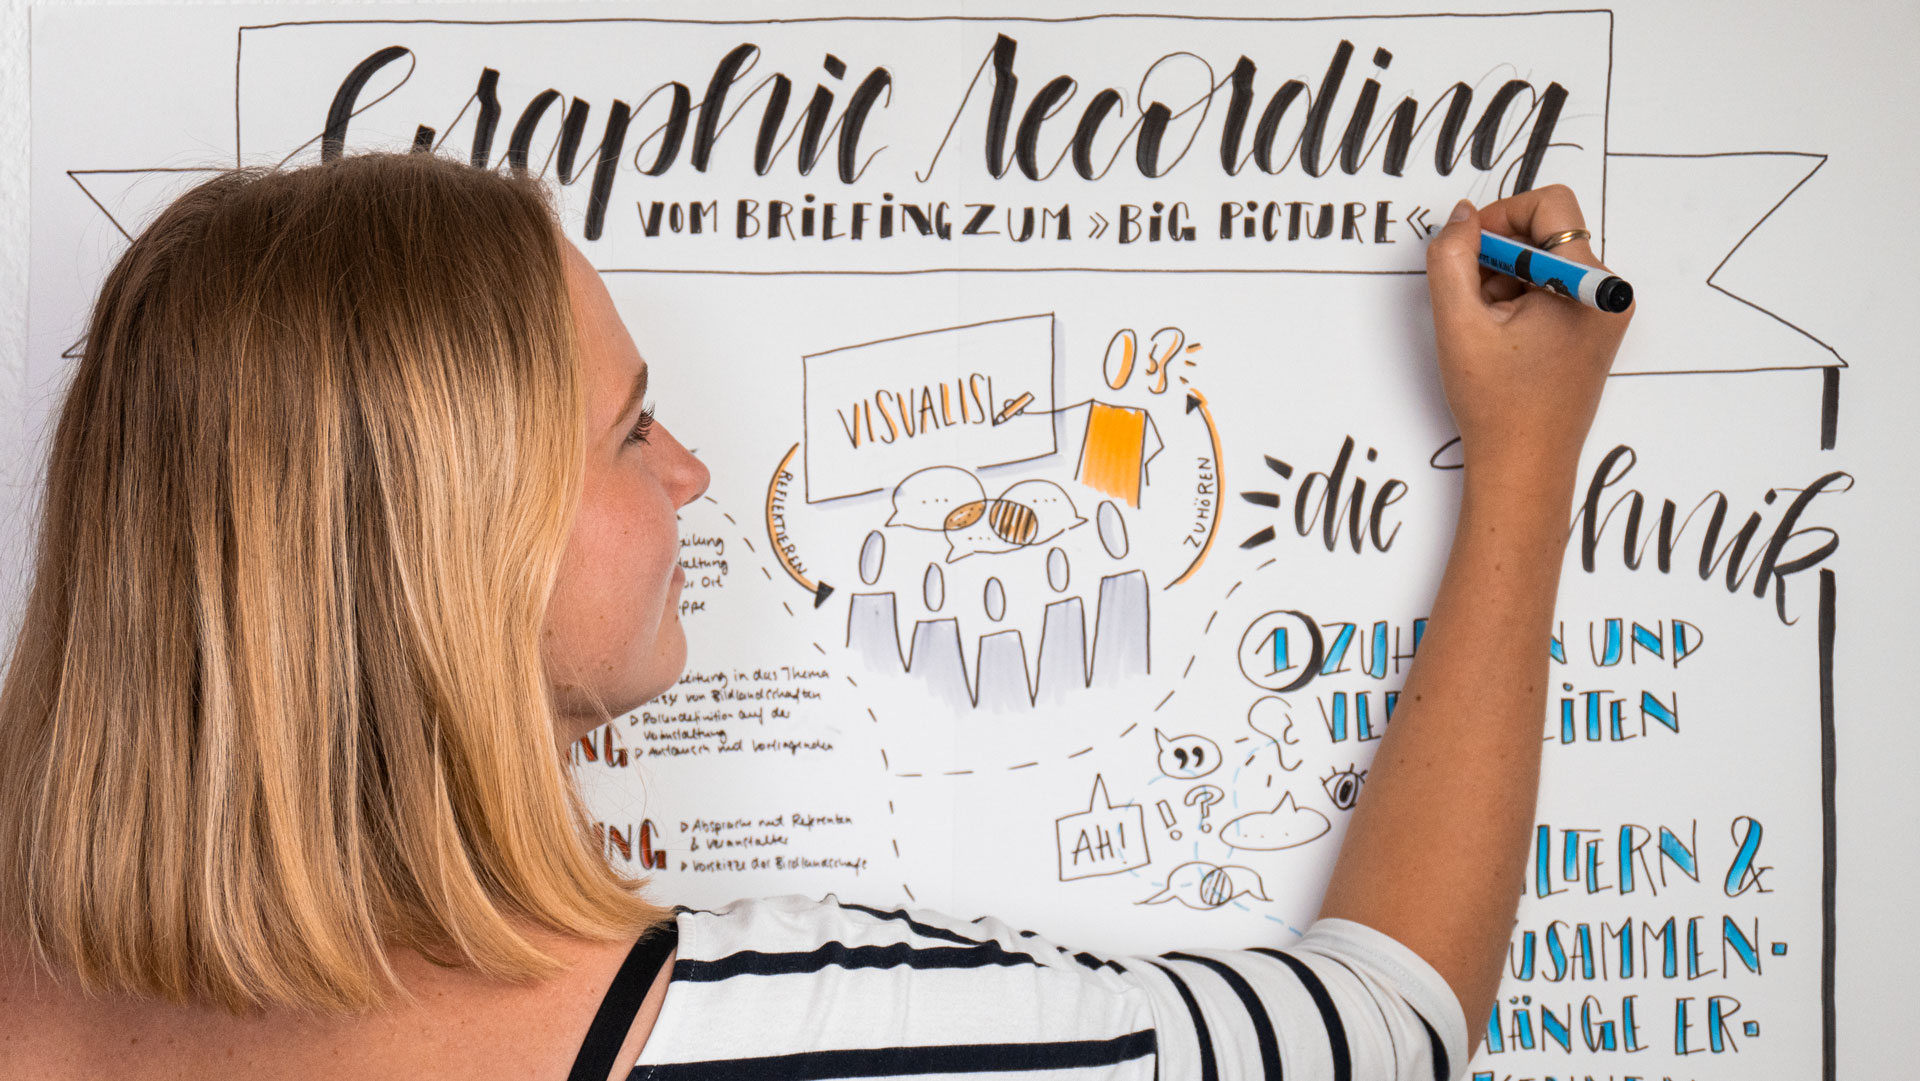 Graphic recording
VOM BRIEFING ZUM »BIG PICTURE«
VISUALIS
REFLEKTIEREN
ZUHÖREN
die
1 ZUH UND
VE EITEN
in das Thema
von Bildlandschaften
▷ Rollendefinition auf der
Veranstaltung
▷ Austausch mit Vortragenden
NG
▷ Absprache mit Referenten
& Veranstalter
NG
▷ Vorskizze der Bildlandschaft
Ort
AH!
!
?
LTERN &
USAMMEN-
ÄNGE ER-